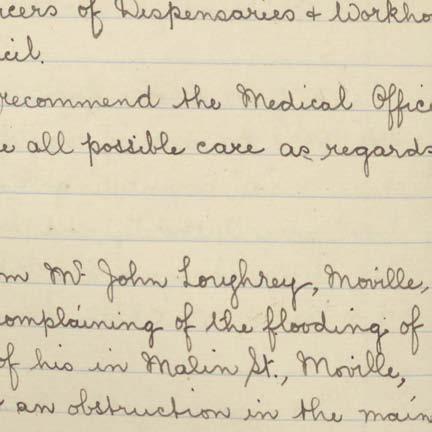 icers of Dispensaries & Workho
cil.
recommend the Medical Offic
e all possible care as regards
m Mr John Loughrey, Moville,
omplaining of the flooding of
of his in Malin St., Moville,
an obstruction in the main